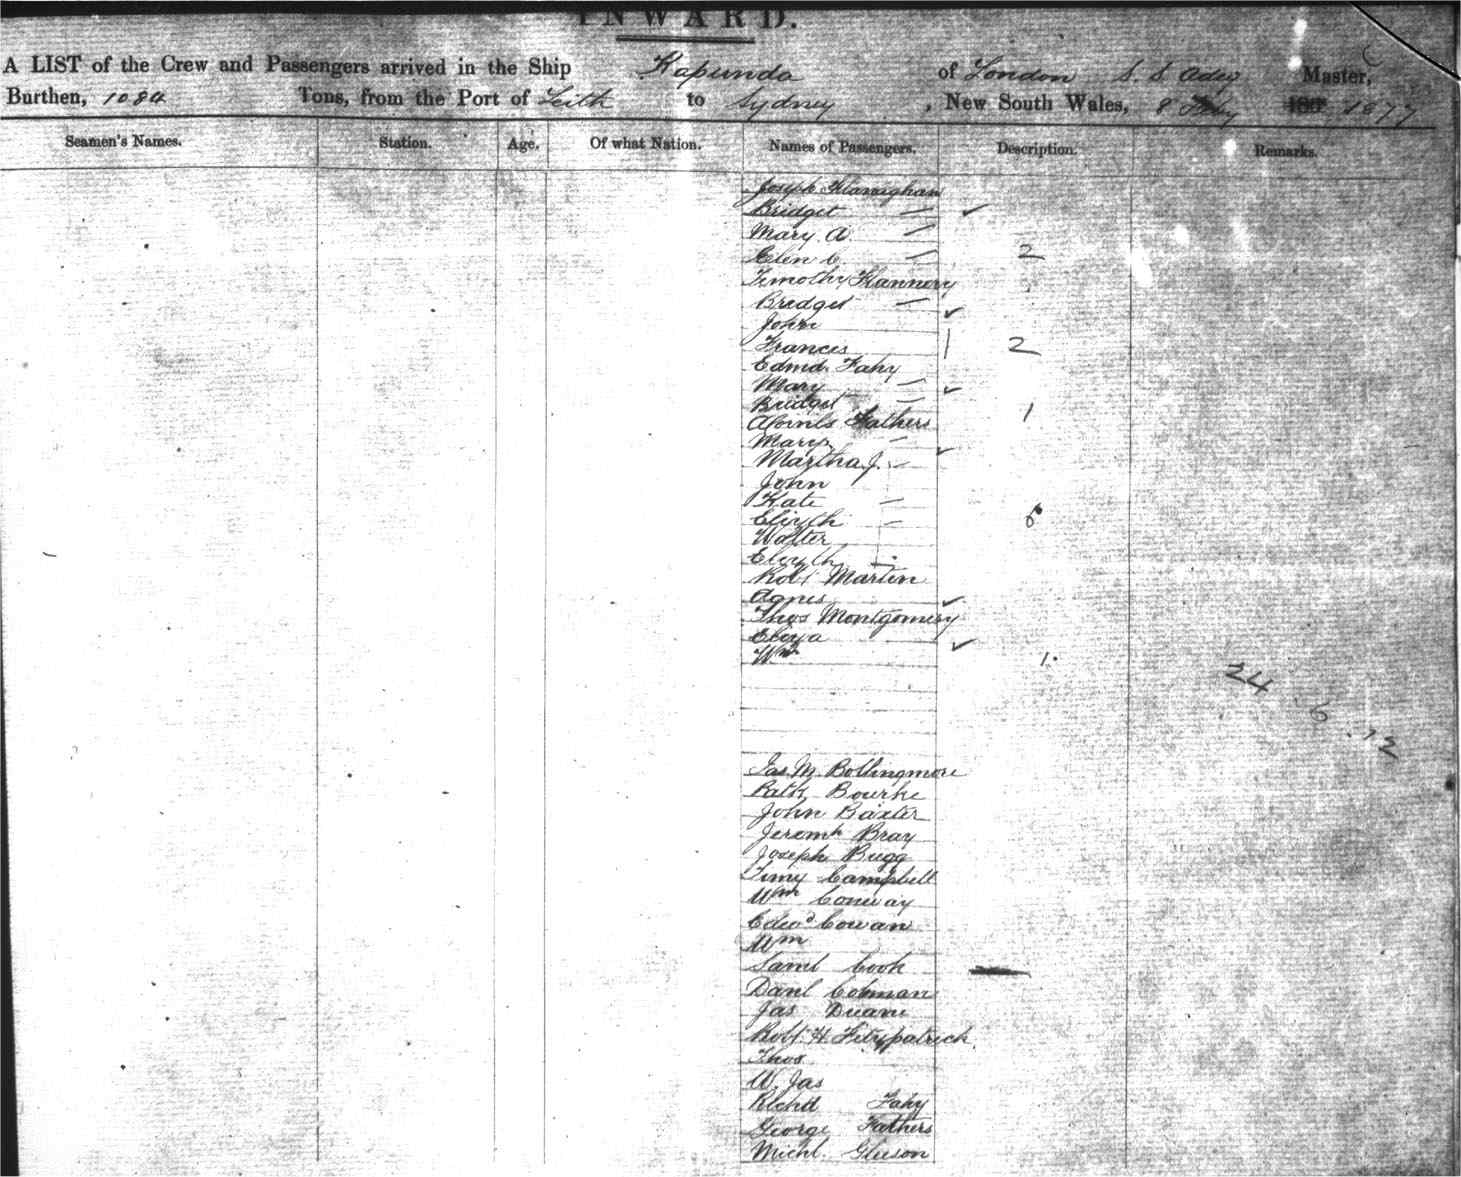 INWARD.
A LIST of the Crew and Passengers arrived in the Ship Kapunda of London S. S. Master,
Burthen, 1084 Tons, from the Port of Leith to Sydney , New South Wales, 8 Feby 1877
Seamen's Names. Station. Age. Of what Nation. Names of Passengers. Description. Remarks.
Joseph Flanaghan
Bridget — ✓
Mary A. —
Elen C. — 2
Timothy Flannery
Bridget — ✓
John
Frances 2
Edmd. Fahy
Mary — ✓
Bridget — 1
Fathers
Mary — ✓
Martha J. —
John
Kate —
Elizth — 6
Walter
Elizth
Robt Martin
Agnes ✓
Thos Montgomery
Eliza ✓
Wm 1.
24
6
12
Jas. M. Bollingmore
Patk Bourke
John Baxter
Jeremh Bray
Joseph Bugg
Timy Campbell
Wm Conway
Edwd Cowan
Wm
Saml Cook
Danl Colman
Jas Duane
Robt. H. Fitzpatrick
Thos.
W. Jas
Richd Fahy
George Fathers
Michl. Gleeson